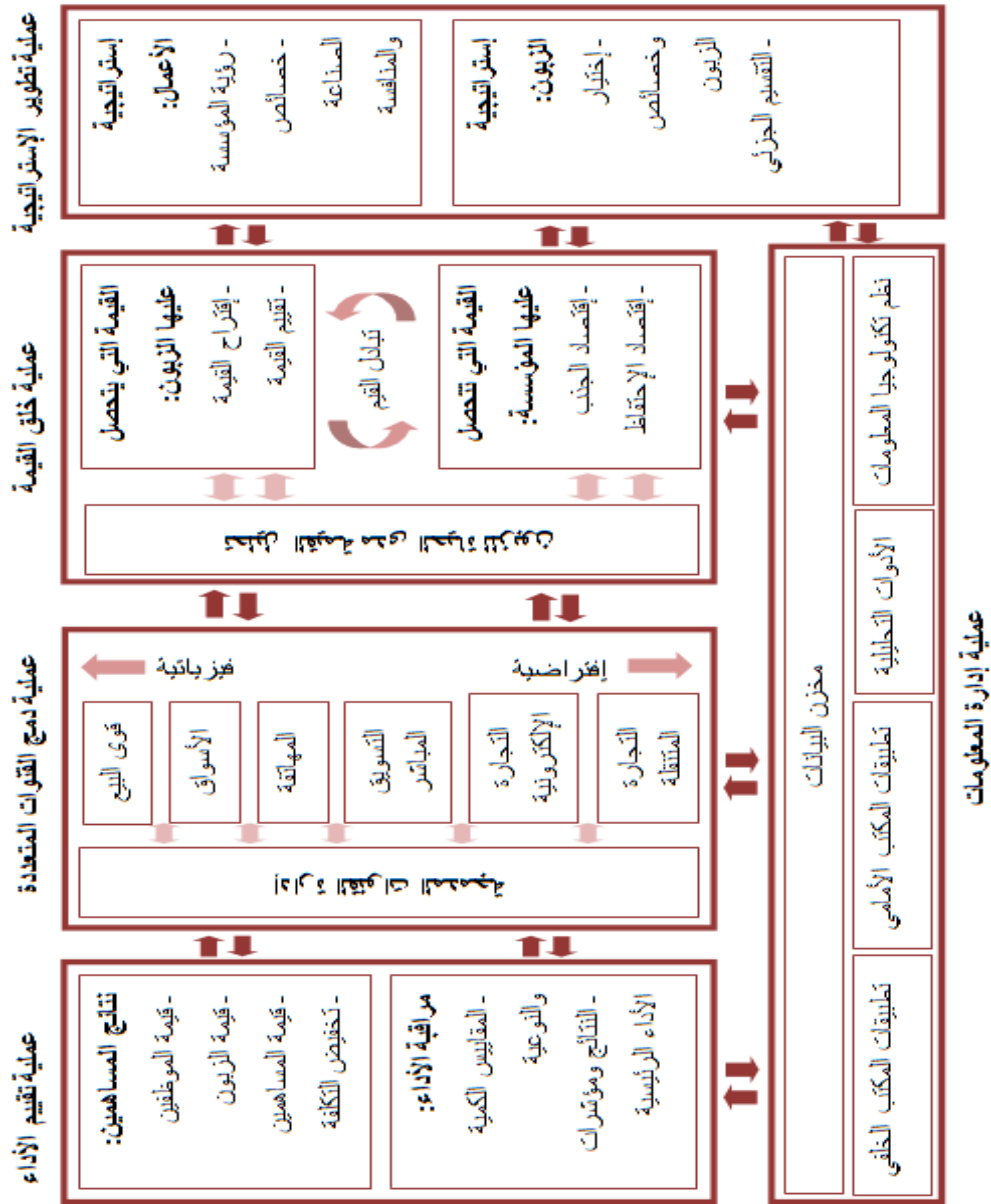 عملية تطوير الإستراتيجية
إستراتيجية
الأعمال:
- رؤية المؤسسة
- خصائص
الصناعة
والمنافسة
إستراتيجية
الزبون:
- إختيار
وخصائص
الزبون
- التقسيم الجزئي
عملية خلق القيمة
القيمة التي يتحصل
عليها الزبون:
- إقتراح القيمة
- تقييم القيمة
تبادل القيم
القيمة التي تتحصل
عليها المؤسسة:
- إقتصاد الجنب
- إقتصاد الإحتفاظ
تحليل القيمة مدى الحياة للزبون
عملية دمج القنوات المتعددة
فيزيائية
إفتراضية
قوى البيع
الأسواق
المهاتفة
التسويق
المباشر
التجارة
الإلكترونية
التجارة
المتنقلة
إدارة القنوات المدمجة
عملية تقييم الأداء
نتائج المساهمين:
- قيمة الموظفين
- قيمة الزبون
- قيمة المساهمين
- تخفيض التكلفة
مراقبة الأداء:
- المقاييس الكمية
والنوعية
- النتائج ومؤشرات
الأداء الرئيسية
مخزن البيانات
نظم تكنولوجيا المعلومات
الأدوات التحليلية
تطبيقات المكتب الأمامي
تطبيقات المكتب الخلفي
عملية إدارة المعلومات